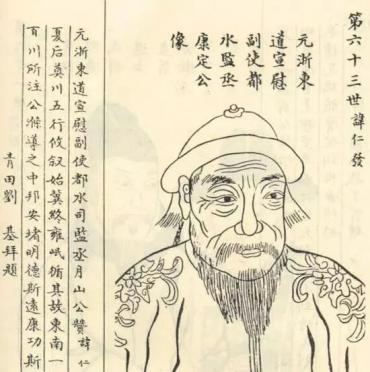 第六十三世諱仁發
元浙東
道宣慰
副使都
水監丞
康定公
像
元浙東道宣慰副使都水司監丞月山公贊諱仁
夏后奠川五行攸叙始冀終雍岷循其故東南一
百川所注公滌導之中邦安堵明德斯遠康功斯
青田劉 基拜題